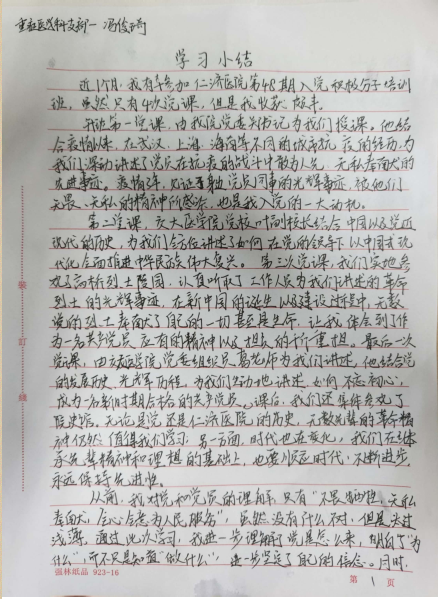 重症医学科支部一 冯俊琦
学习小结
近1个月,我有幸参加仁济医院第48期入党积极分子培训
班,虽然只有4次党课,但是我收获颇丰。
开班第一堂课,由我院党委书记为我们授课。他结
合疫情以来,在武汉、上海、海南等不同的城市抗疫的经历,为
我们深动讲述了党员在抗疫的战斗中敢为人先、无私奉献的
先进事迹。疫情3年,见证了身边党员同事的光辉事迹,被他们
无畏、无私的精神所感染,也是我入党的一大动机。
第二堂课,交大医学院党校叶副校长结合中国以及党近
现代的历史,为我们全面讲述了如何在党的领导下以中国式现
代化全面推进中华民族伟大复兴。第三次党课,我们实地参
观了高桥烈士陵园,认真听取了工作人员为我们讲述的革命
烈士的光辉事迹,在新中国的诞生以及建设过程中,无数
的烈士奉献了自己的一切甚至是生命,让我体会到了作
为一名共产党员应有的精神以及担负的千斤重担。最后一次
党课,由 医院党委组织员葛老师为我们讲述,他结合党
的发展历史、光辉历程,为我们生动地讲述,如何不忘初心,
成为一名新时期合格的共产党员。课后,我们还集体参观了
院史馆。无论是党还是仁济医院的历史,无数先辈的革命精
神仍然值得我们学习,另一方面,时代也在变化,我们在继
承先辈精神和理想的基础上,也要顺应时代,不断进步,
永远保持先进性。
从前,我对党和党员的理解,只有“不畏牺牲、无私
奉献,全心全意为人民服务”,虽然没有什么不对,但是太过
浅薄。通过此次学习,我进一步理解了党是怎么来,明白了“为
什么”,而不只是知道“做什么”,进一步坚定了自己的信念。同时,
装
订
线
强林纸品 923-16
第 1 页